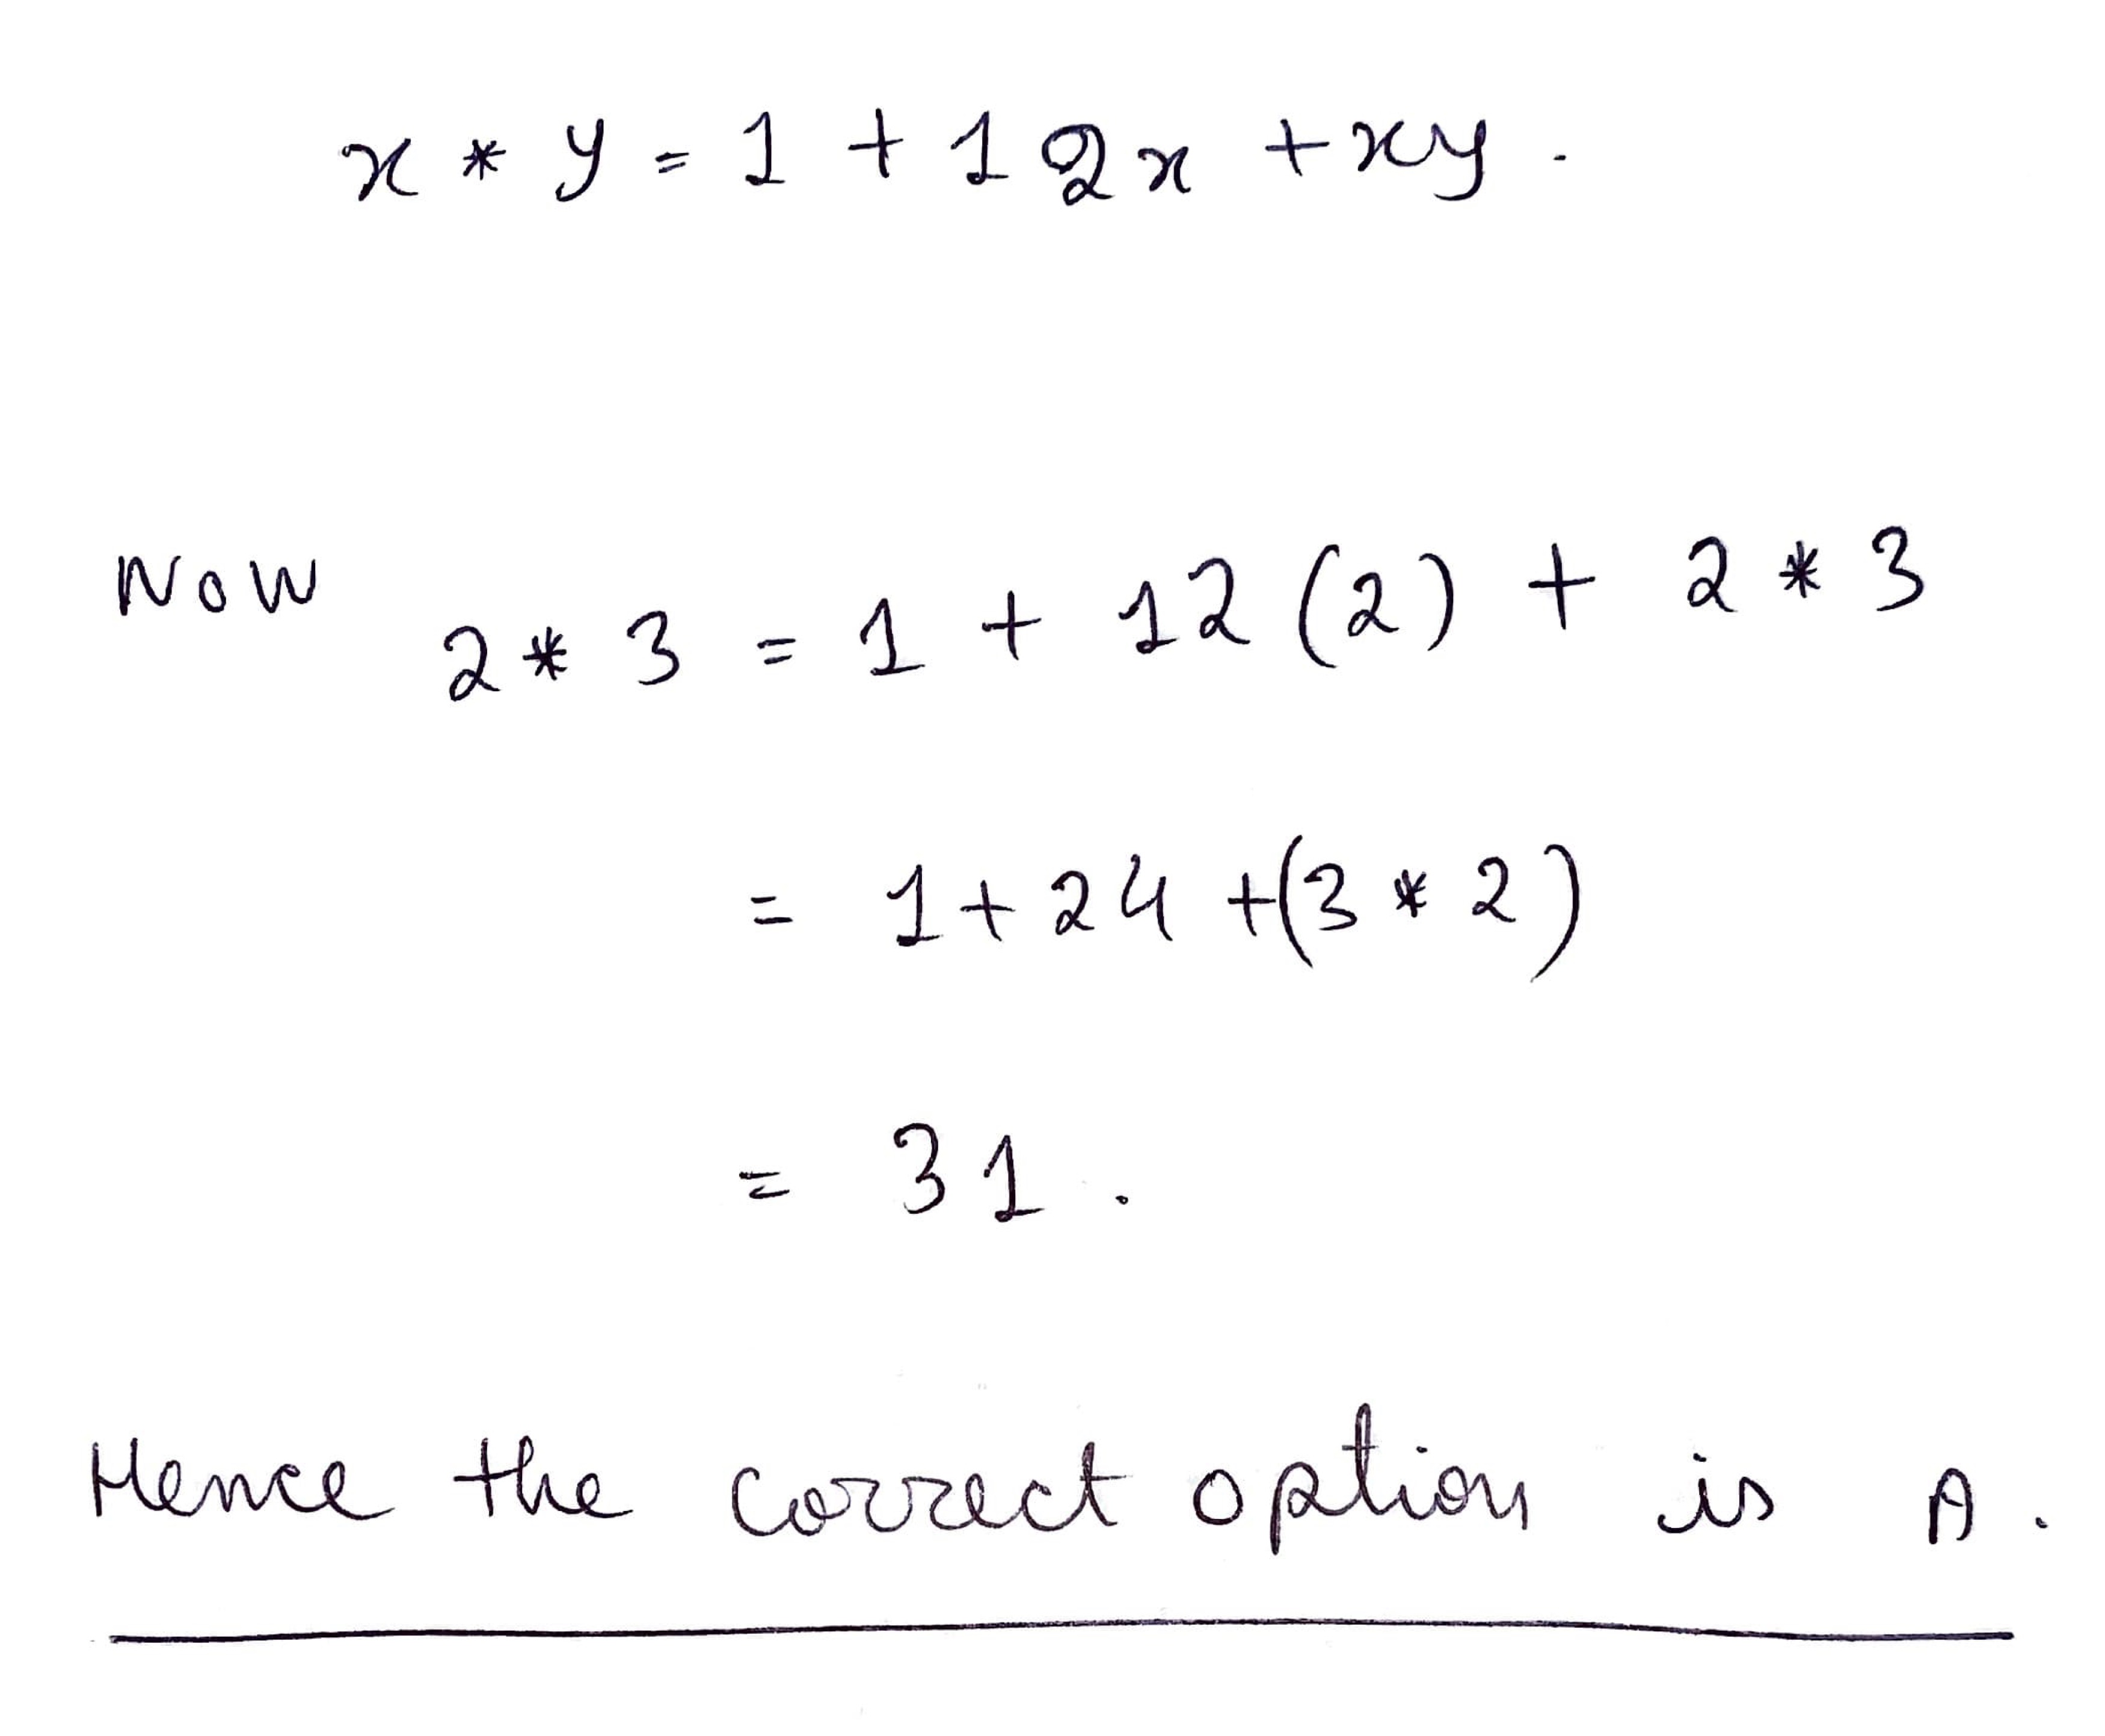 x * y = 1 + 12x + xy.
Now
2 * 3 = 1 + 12 (2) + 2 * 3
= 1 + 24 + (3 * 2)
= 31.
Hence the correct option is A.